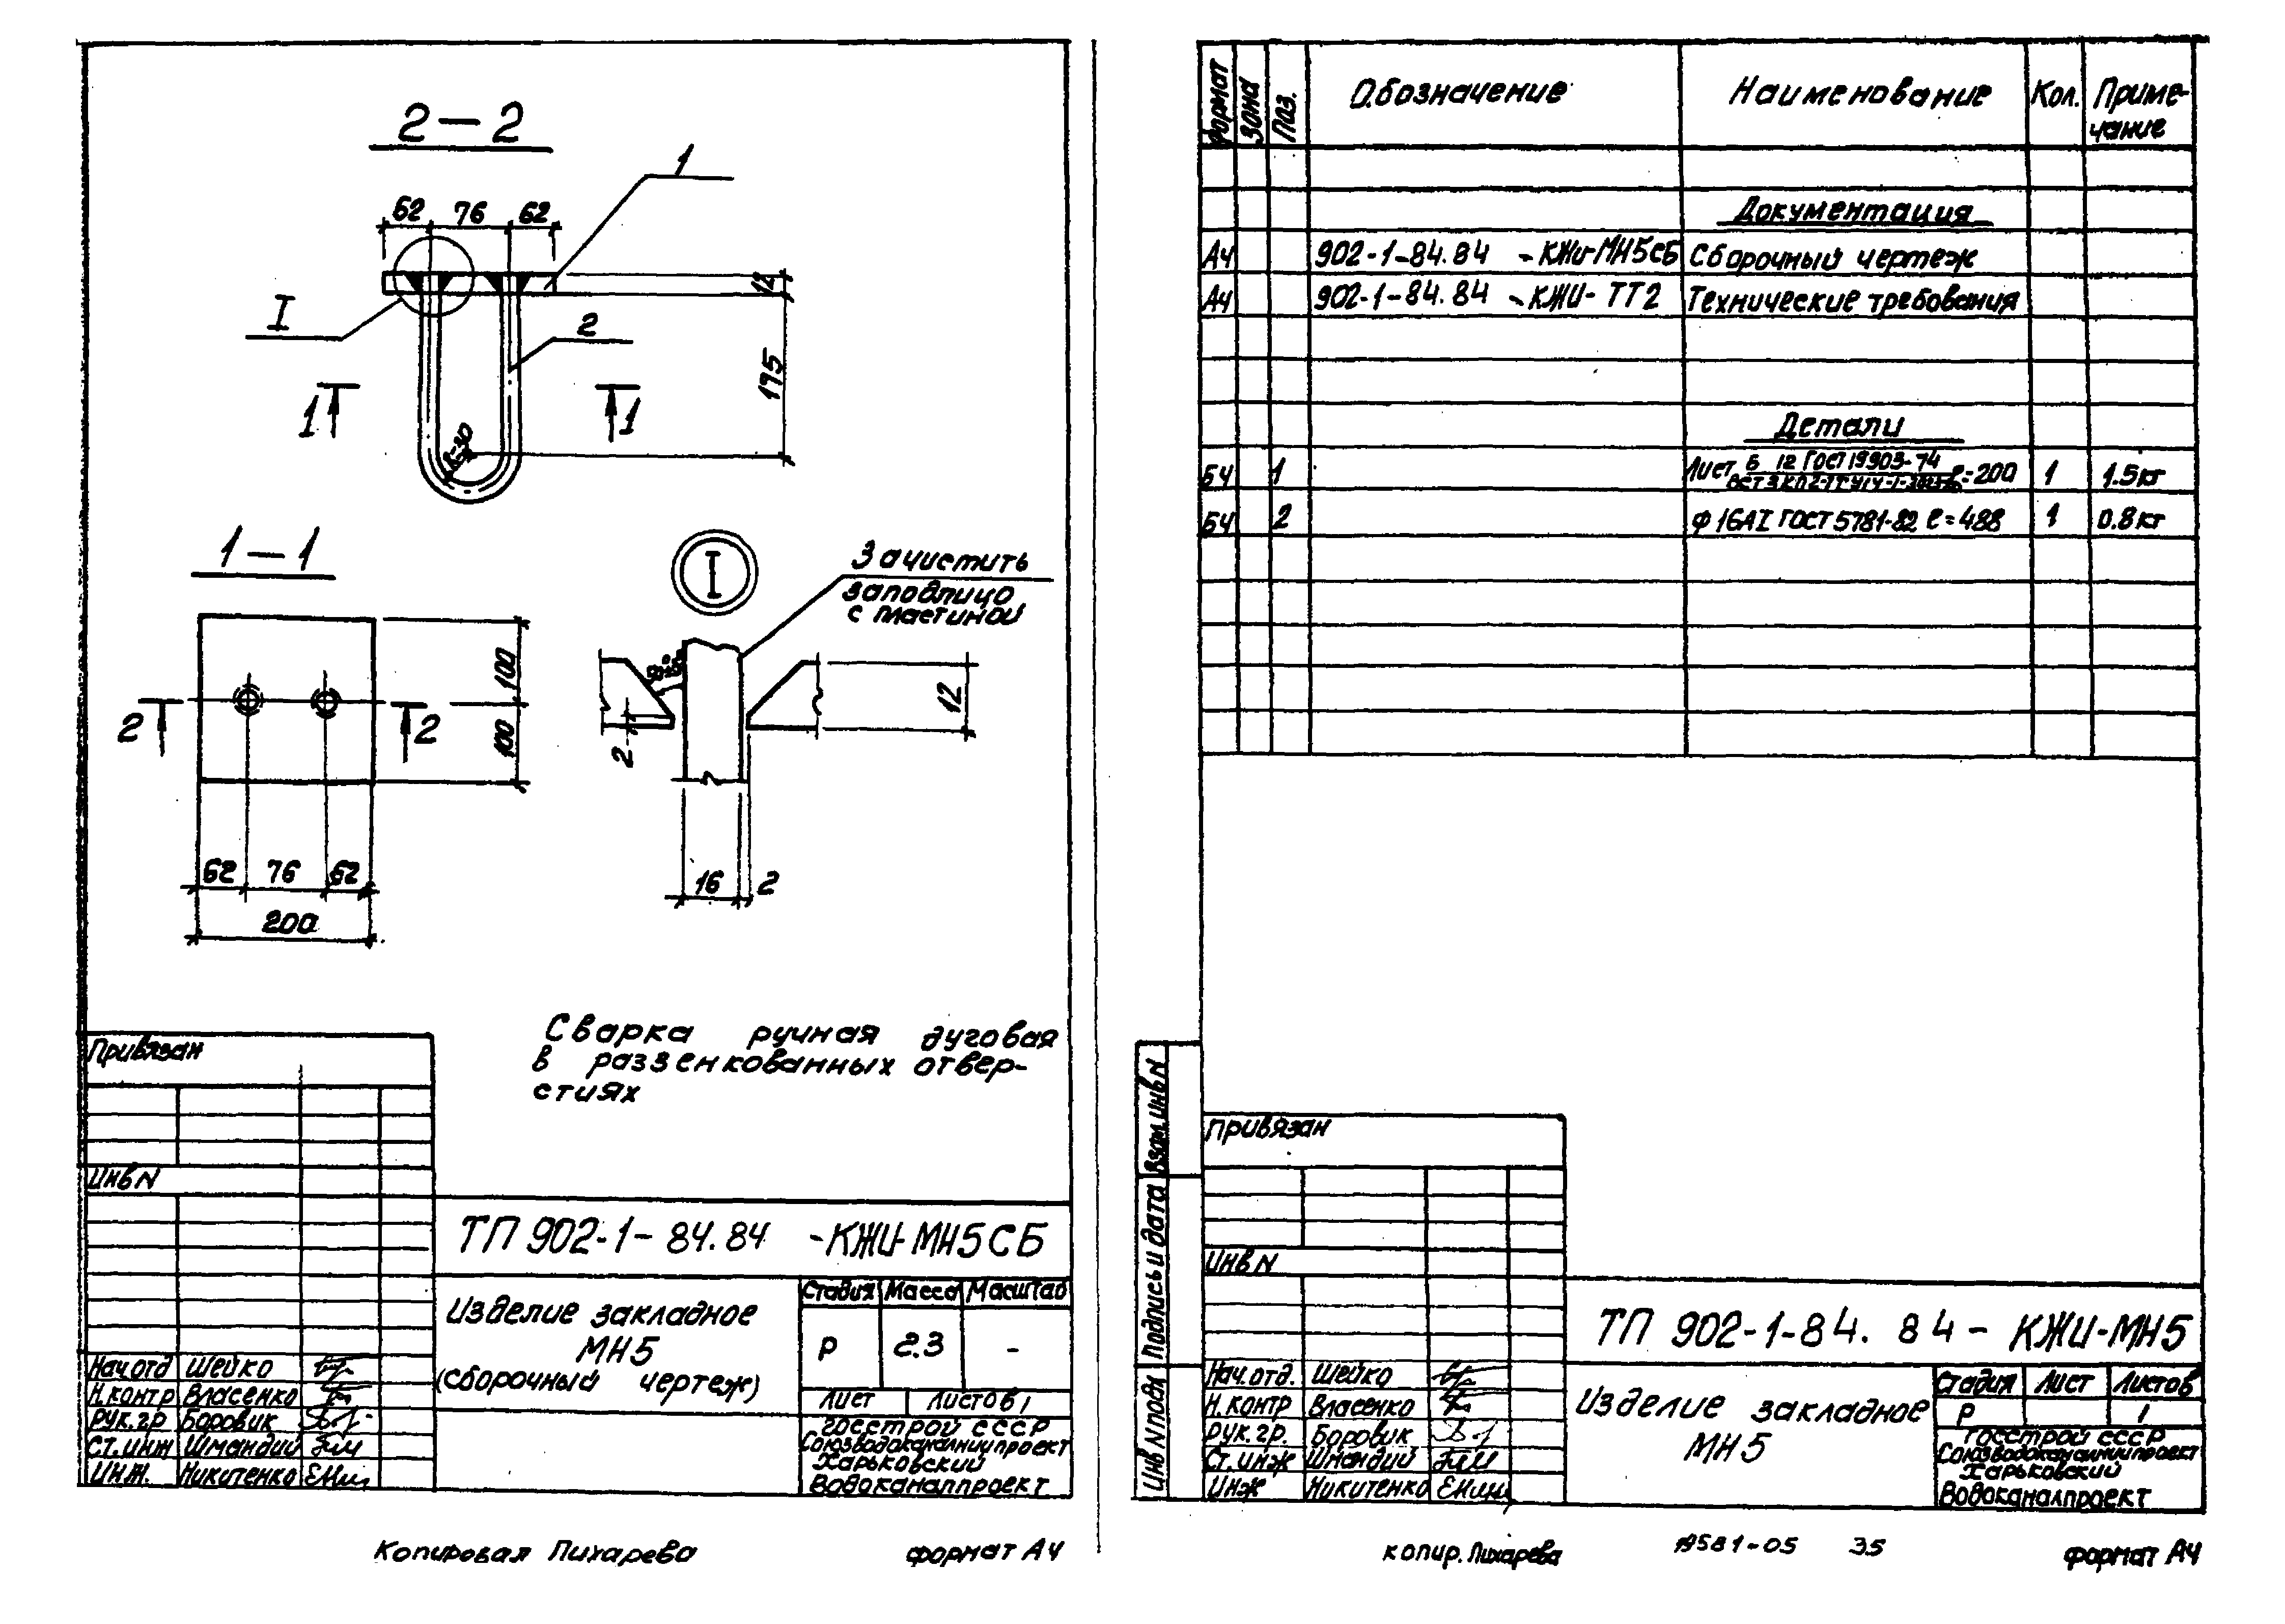 2-2
1
62 76 62
12
I
2
175
1 1
R=30
1-1
I
Зачистить
заподлицо
с пластиной
100
100
2 2
12
2
62 76 62
200
16 2
Сварка ручная дуговая
в раззенкованных отвер-
стиях
Привязан
Инв N
ТП 902-1-84.84 -КЖИ-МН5СБ
Изделие закладное
МН5
(сборочный чертеж)
Стадия Масса Масштаб
Р 2.3 -
Лист Листов 1
Госстрой СССР
Союзводоканалниипроект
Харьковский
Водоканалпроект
Нач.отд Шейко
Н.контр Власенко
Рук.гр Боровик
Ст.инж Шмандий
Инж. Никитенко
Копировал Пихарева формат А4
Формат Зона Поз. Обозначение Наименование Кол. Приме-
чание
Документация
А4 902-1-84.84 -КЖИ-МН5СБ Сборочный чертеж
А4 902-1-84.84 -КЖИ-ТТ2 Технические требования
Детали
БЧ 1 Лист Б 12 ГОСТ 19903-74 ℓ=200 1 1.5кг
БЧ 2 Ф16АI ГОСТ 5781-82 ℓ=488 1 0.8кг
Взам. инв N
Подпись и дата
Инв N подл
Привязан
Инв N
ТП 902-1-84.84-КЖИ-МН5
Изделие закладное
МН5
Стадия Лист Листов
Р 1
Госстрой СССР
Союзводоканалниипроект
Харьковский
Водоканалпроект
Нач.отд. Шейко
Н.контр Власенко
Рук.гр. Боровик
Ст.инж Шмандий
Инж Никитенко
копир. Пихарева 19581-05 35 формат А4